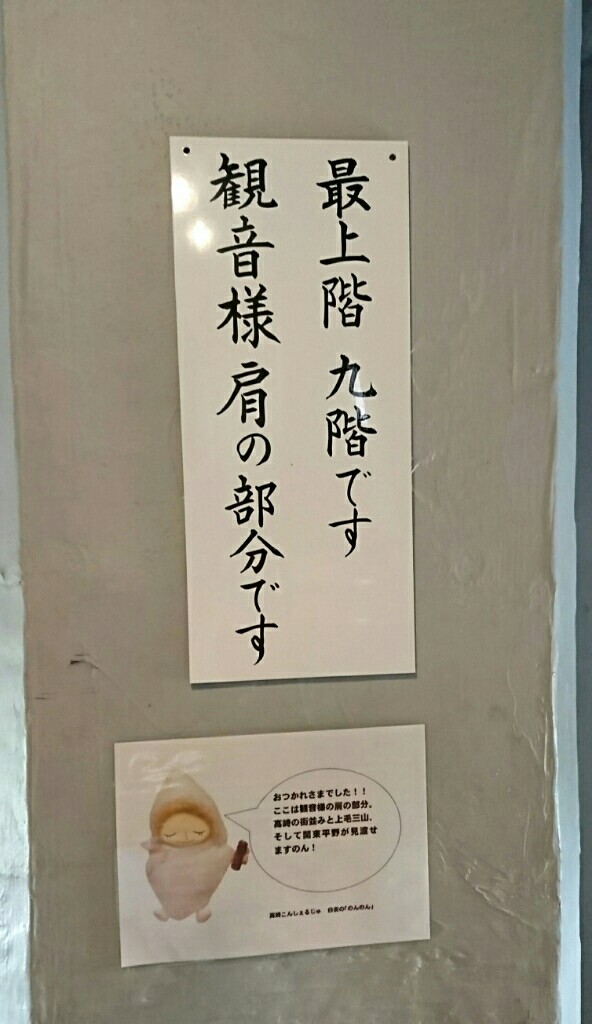 最上階 九階です
観音様 肩の部分です
おつかれさまでした！！
ここは観音様の肩の部分。
高崎の街並みと上毛三山、
そして関東平野が見渡せ
ますのん！
高崎こんしぇるじゅ 白衣の「のんのん」